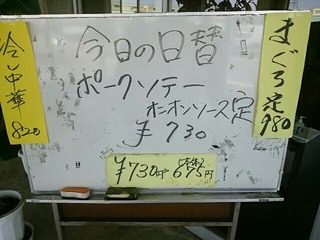 今日の日替
ポークソテー
オニオンソース定
¥730
¥730円 本体 675円
まぐろ定
980
冷し中華
820